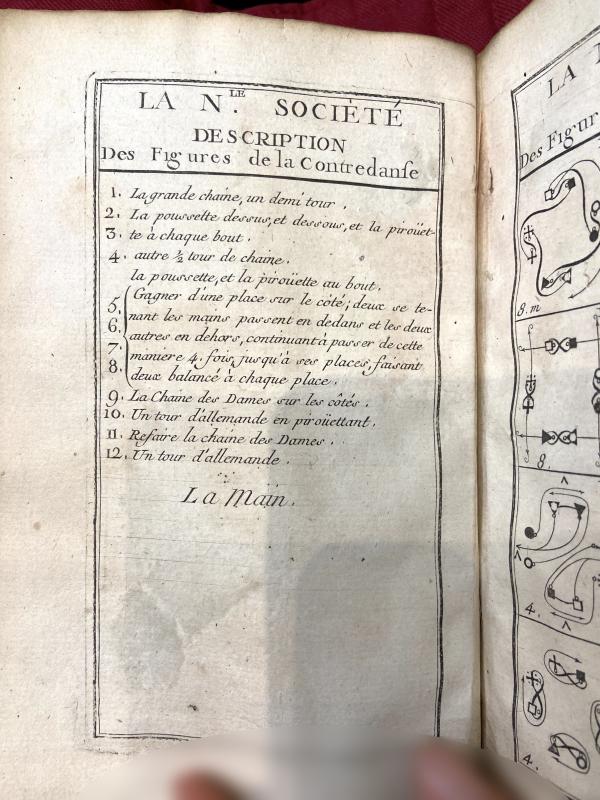 LA N.LE SOCIÉTÉ
DESCRIPTION
Des Figures de la Contredanſe
1. La grande chaine, un demi tour.
2. La pouſſette deſſus, et deſſous, et la piroüet-
3. te à chaque bout.
4. autre ½ tour de chaine.
la pouſſette, et la piroüette au bout.
5. Gagner d'une place ſur le côté; deux ſe te-
nant les mains paſſent en dedans et les deux
6. autres en dehors, continuant à paſſer de cette
7. maniere 4. fois, juſqu'à ſes places, faiſant
8. deux balancé à chaque place.
9. La Chaine des Dames ſur les côtés.
10. Un tour d'allemande en piroüettant.
11. Refaire la chaine des Dames.
12. Un tour d'allemande.
La Main.
LA N
Des Figur
8. m
8.
4.
4.